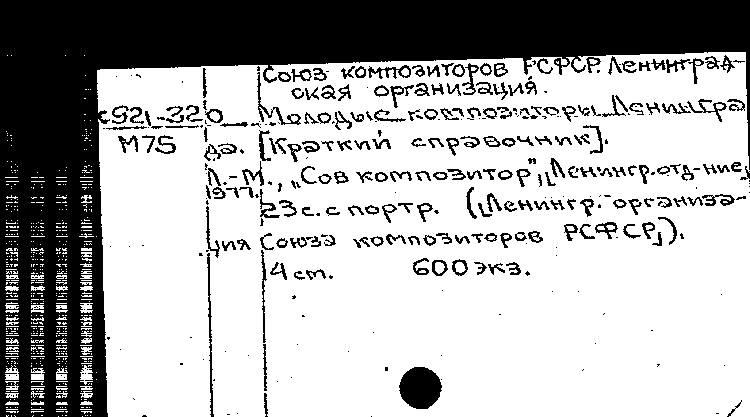 Союз композиторов РСФСР. Ленинград-
ская организация.
с92,-32 0 Молодые композиторы Ленингра
М75 да. [Краткий справочник].
Л.-М., „Сов композитор”, [Ленингр. отд-ние,
1977.
23с. с портр. ([Ленингр. организа-
ция Союза композиторов РСФСР]).
14 см. 600 экз.